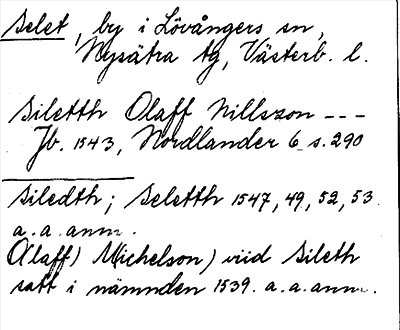 Selet, by i Lövångers sn,
Nysätra tg, Västerb. l.
Siletth Olaff Nillszon ---
Jb. 1543, Nordlander 6 s. 290
Siledth; Seletth 1547, 49, 52, 53.
a. a. anm.
Olaff) Michelson) viid Sileth
satt i nämnden 1539. a. a. anm.